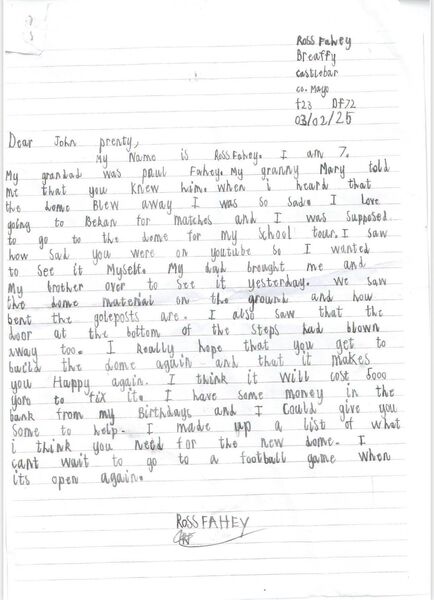 Ross Fahey
Breaffy
Castlebar
co. Mayo
f23 DF72
03/02/25
Dear John prenty,
My Name is Ross Fahey. I am 7.
My grandad was paul Fahey. My granny Mary told
me that you knew him. when i heard that
the dome Blew away I was so sad. I love
going to Bekan for matches and I was supposed
to go to the dome for my school tour. I saw
how sad you were on youtube so I wanted
to see it Myself. My dad brought me and
My brother over to see it yesterday. We saw
the dome material on the ground and how
bent the goleposts are. I also saw that the
door at the bottom of the steps had blown
away too. I Really hope that you get to
build the dome again and that it makes
you Happy again. I think it will cost 5000
yoro to fix it. I have some money in the
bank from my Birthdays and I Could give you
some to help. I made up a list of what
i think you need for the new dome. I
cant wait to go to a football game when
its open again.
ROSS FAHEY